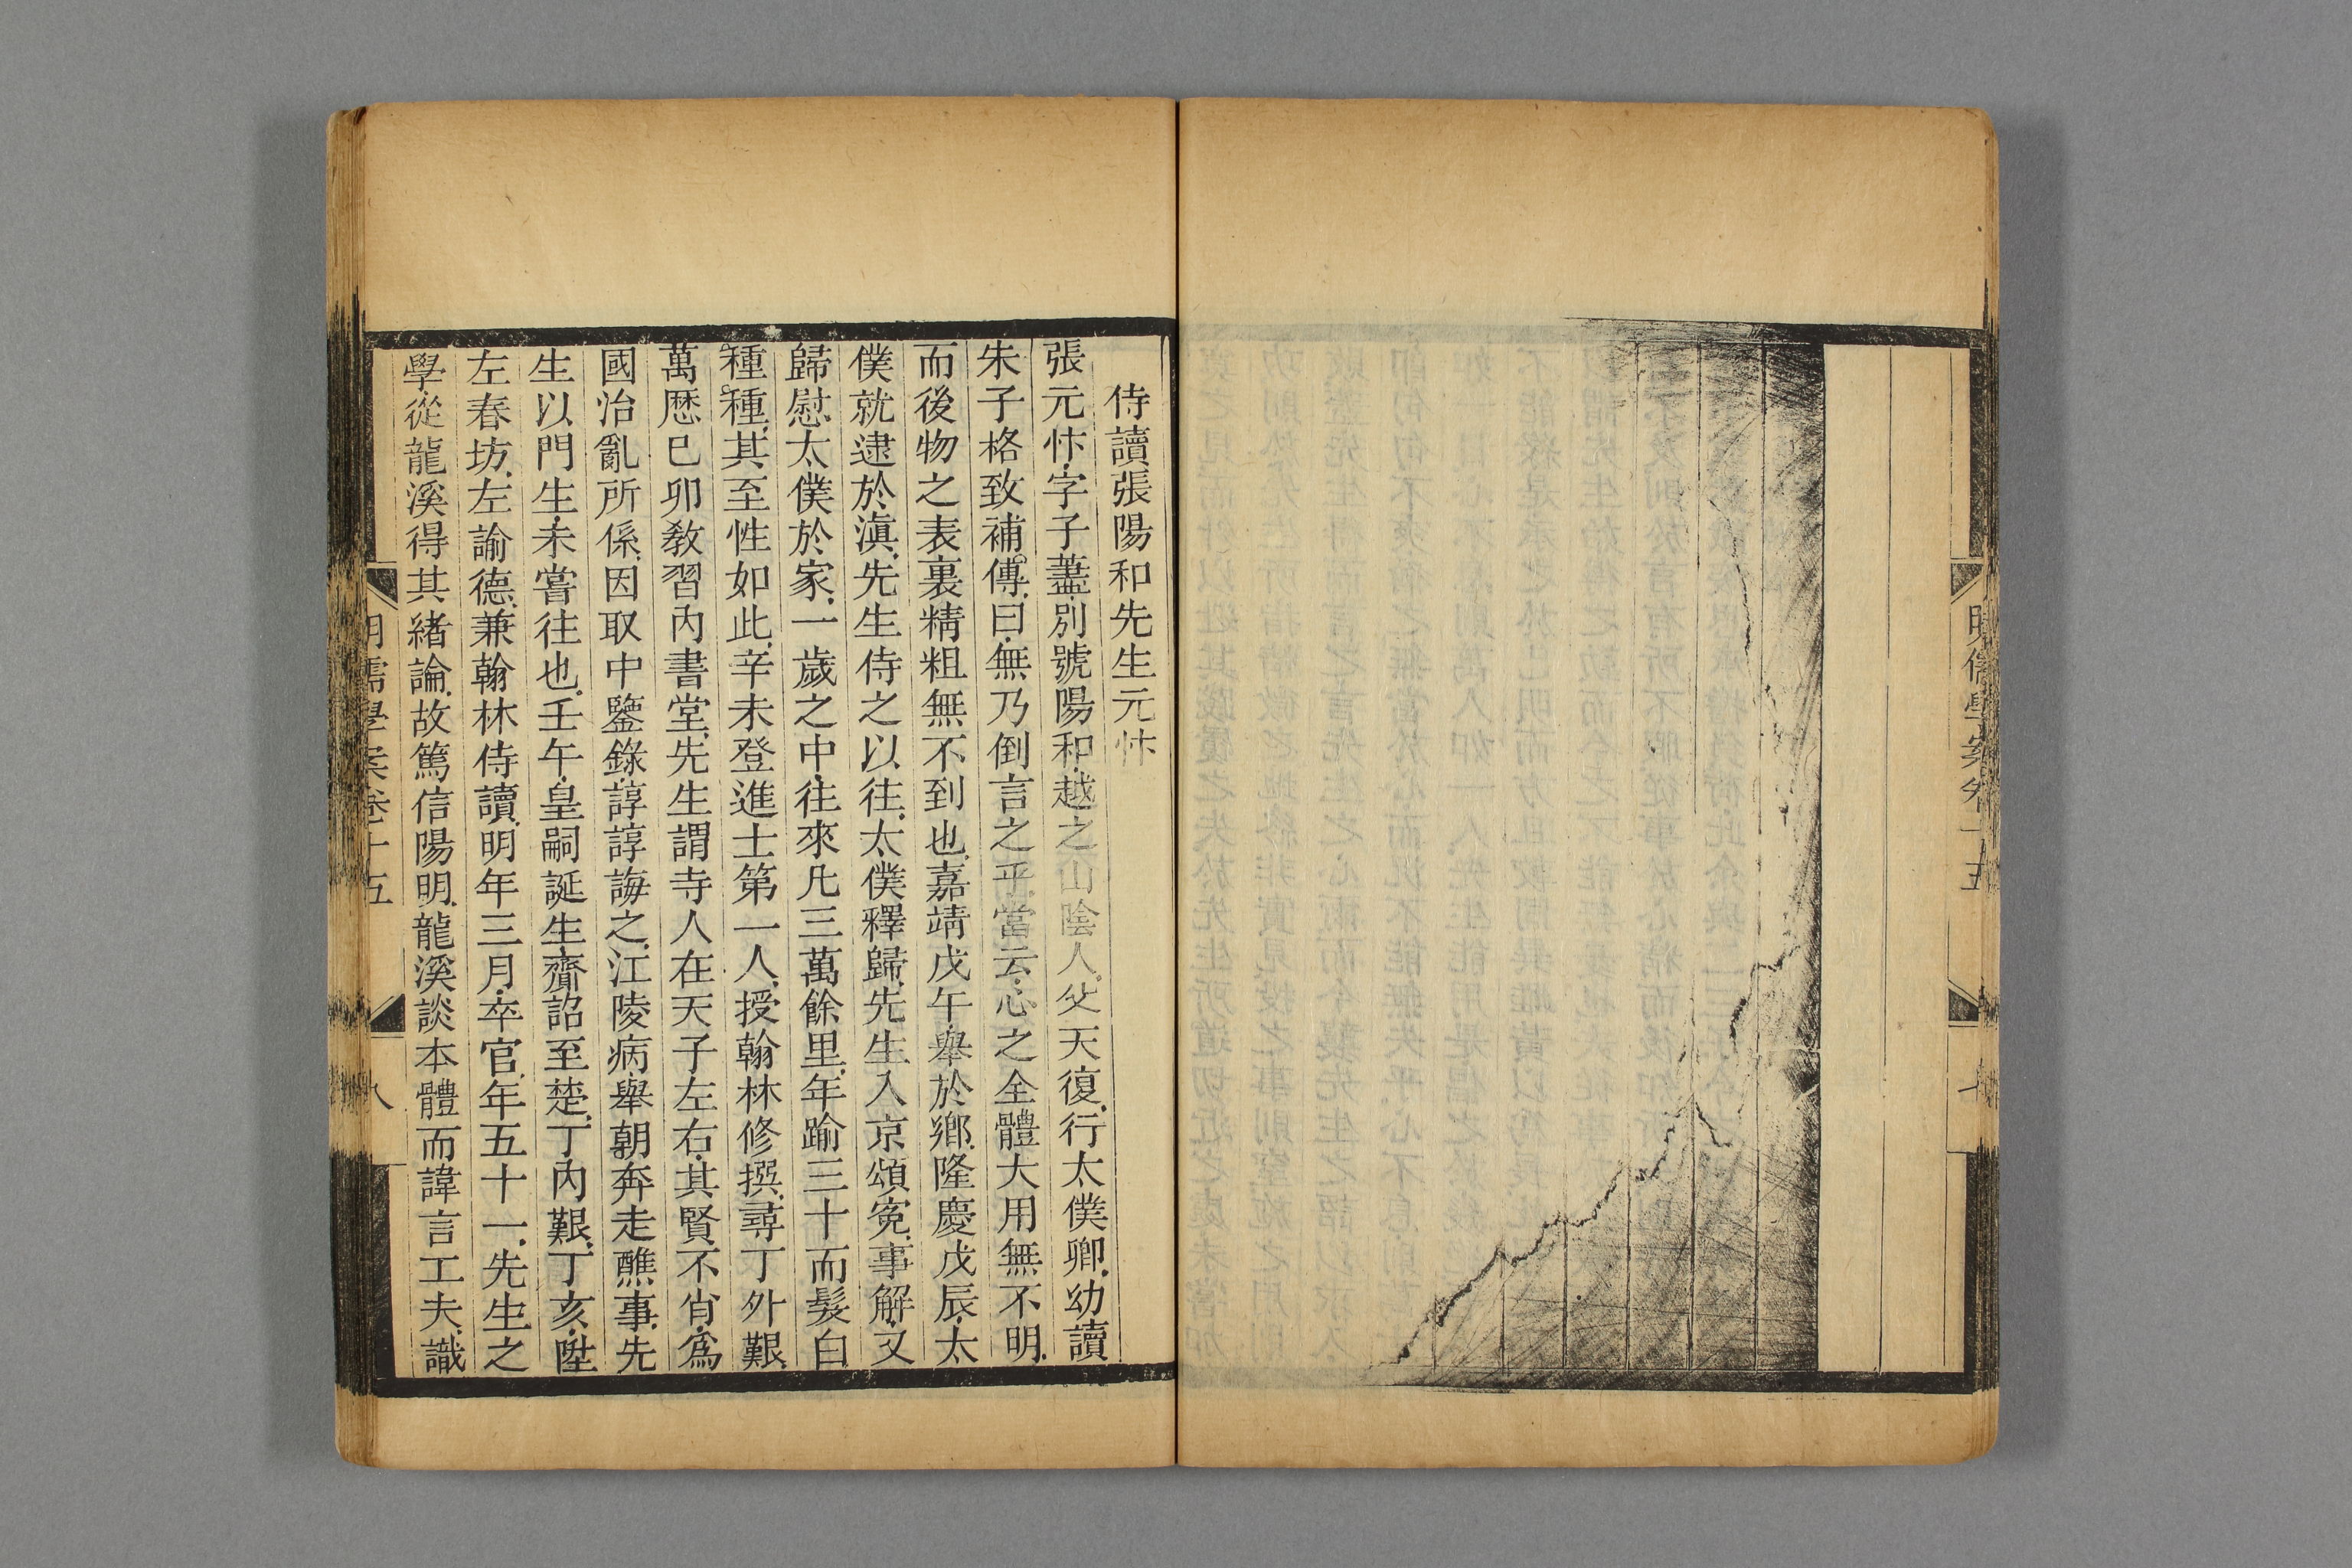 明儒學案卷十五
七
侍讀張陽和先生元忭
張元忭字子藎別號陽和越之山陰人父天復行太僕卿幼讀
朱子格致補傳曰無乃倒言之乎當云心之全體大用無不明
而後物之表裏精粗無不到也嘉靖戊午舉於鄉隆慶戊辰太
僕就逮於滇先生侍之以往太僕釋歸先生入京頌冤事解又
歸慰太僕於家一歲之中往來凡三萬餘里年踰三十而髮白
種種其至性如此辛未登進士第一人授翰林修撰尋丁外艱
萬厯巳卯敎習內書堂先生謂寺人在天子左右其賢不肖爲
國治亂所係因取中鑒錄諄諄誨之江陵病舉朝奔走醮事先
生以門生未嘗往也壬午皇嗣誕生齎詔至楚丁內艱丁亥陞
左春坊左諭德兼翰林侍讀明年三月卒官年五十一先生之
學從龍溪得其緒論故篤信陽明龍溪談本體而諱言工夫識
明儒學案卷十五
八